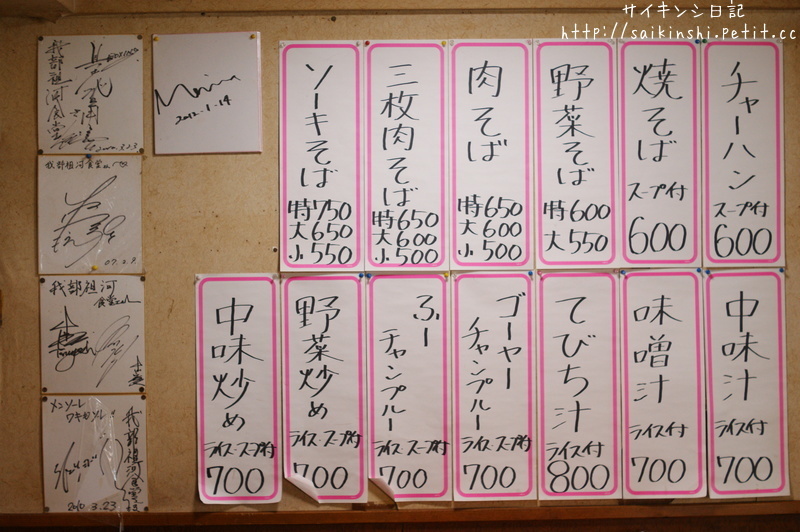 サイキンシ日記
http://saikinshi.petit.cc
チャーハン
スープ付
600
焼そば
スープ付
600
野菜そば
特600
大550
肉そば
特650
大600
小500
三枚肉そば
特650
大600
小500
ソーキそば
特750
大650
小550
中味汁
ライス付
700
味噌汁
ライス付
700
てびち汁
ライス付
800
ゴーヤー
チャンプルー
ライス・スープ付
700
ふー
チャンプルー
ライス・スープ付
700
野菜炒め
ライス・スープ付
700
中味炒め
ライス・スープ付
700
我部祖河食堂
2012.1.14
我部祖河食堂さんへ
07.2.9
我部祖河
食堂さんへ
メンソーレ
ワキガソーレ!!
我部祖河食堂様
2010.3.23